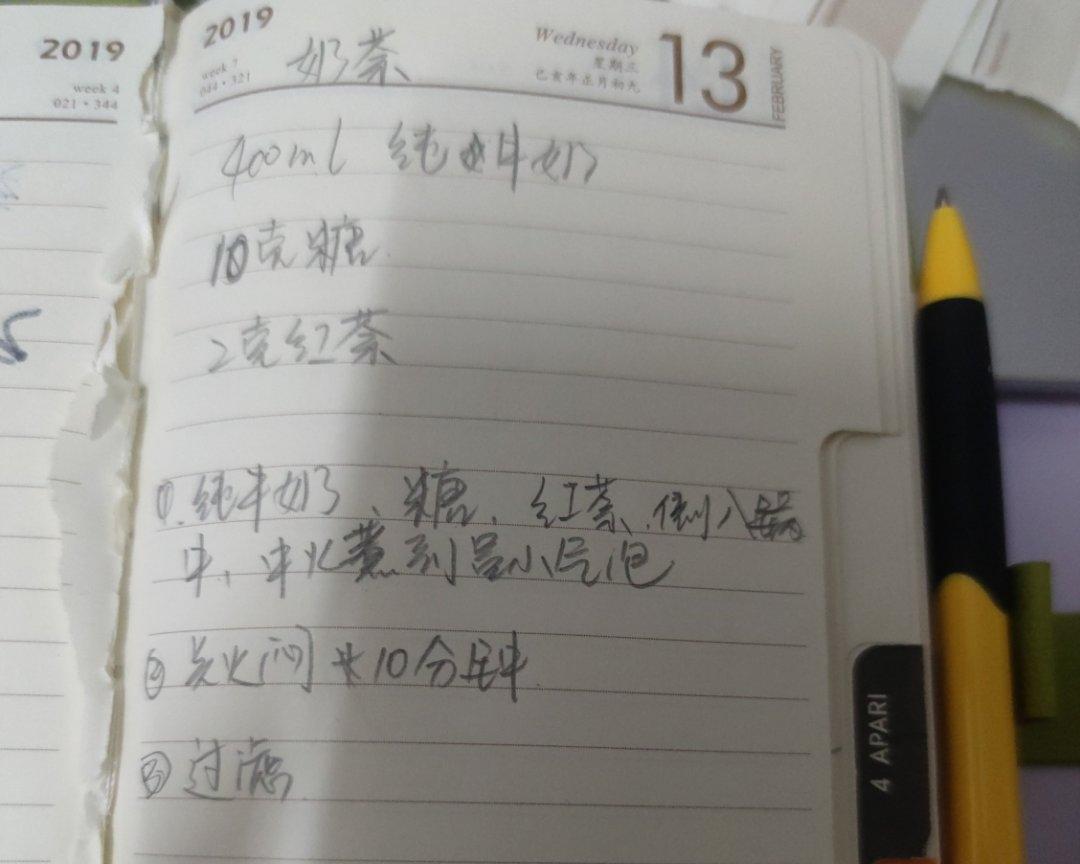 2019
week 4
021 · 344
2019
week 7
044 · 321
奶茶
Wednesday
星期三
己亥年正月初九
13
FEBRUARY
400ml 纯牛奶
10克糖
2克红茶
①、纯牛奶、糖、红茶、倒入锅
中、中火煮到冒小气泡
② 关火闷10分钟
③ 过滤
4 APARI